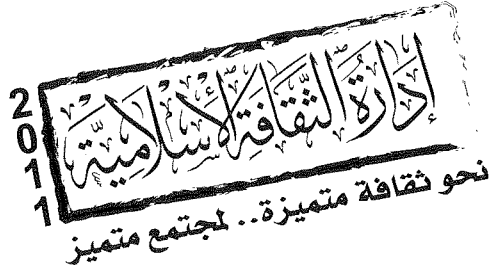 2011
إدارة الثقافة الإسلامية
نحو ثقافة متميزة.. لمجتمع متميز